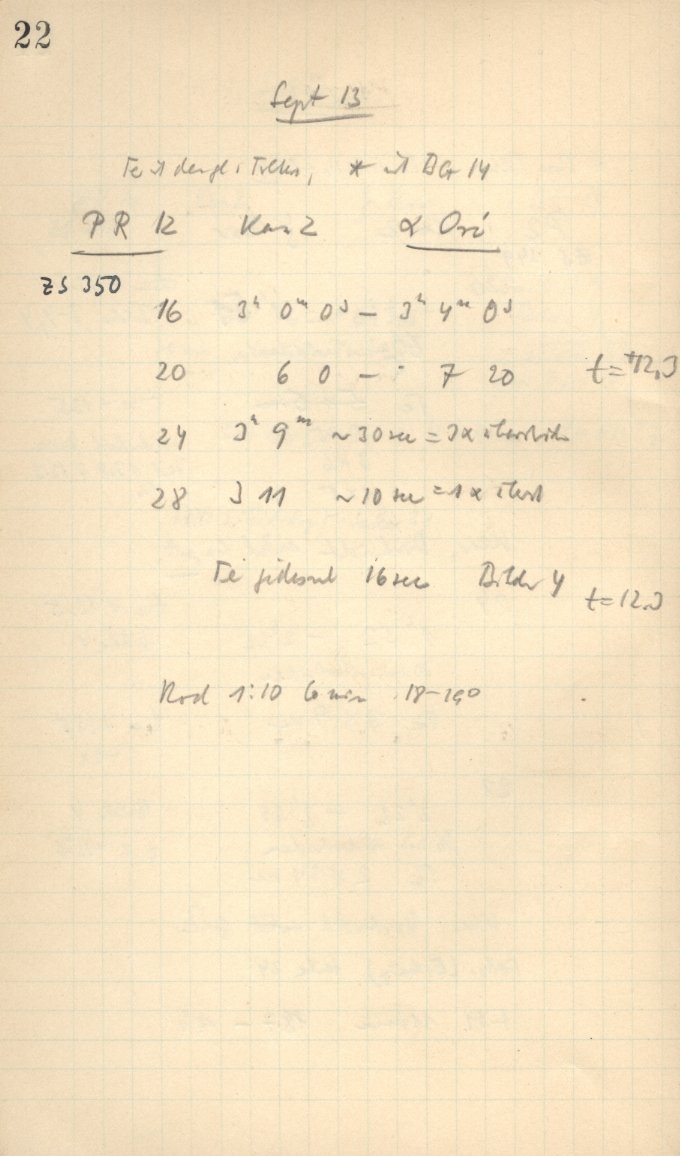 22
Sept 13
Fe * BG 14
PR 12 Kas 2 α Ori
ZS 350
16 3h 0m 0s – 3h 4m 0s
20 6 0 – 7 20 t=+12,3
24 3h 9m ~30 sec = 3x
28 3 11 ~10 sec = 1x
Fe jedesmal 16 sec Bilder 4 t=12,3
Rod 1:10 6 min 18–19°